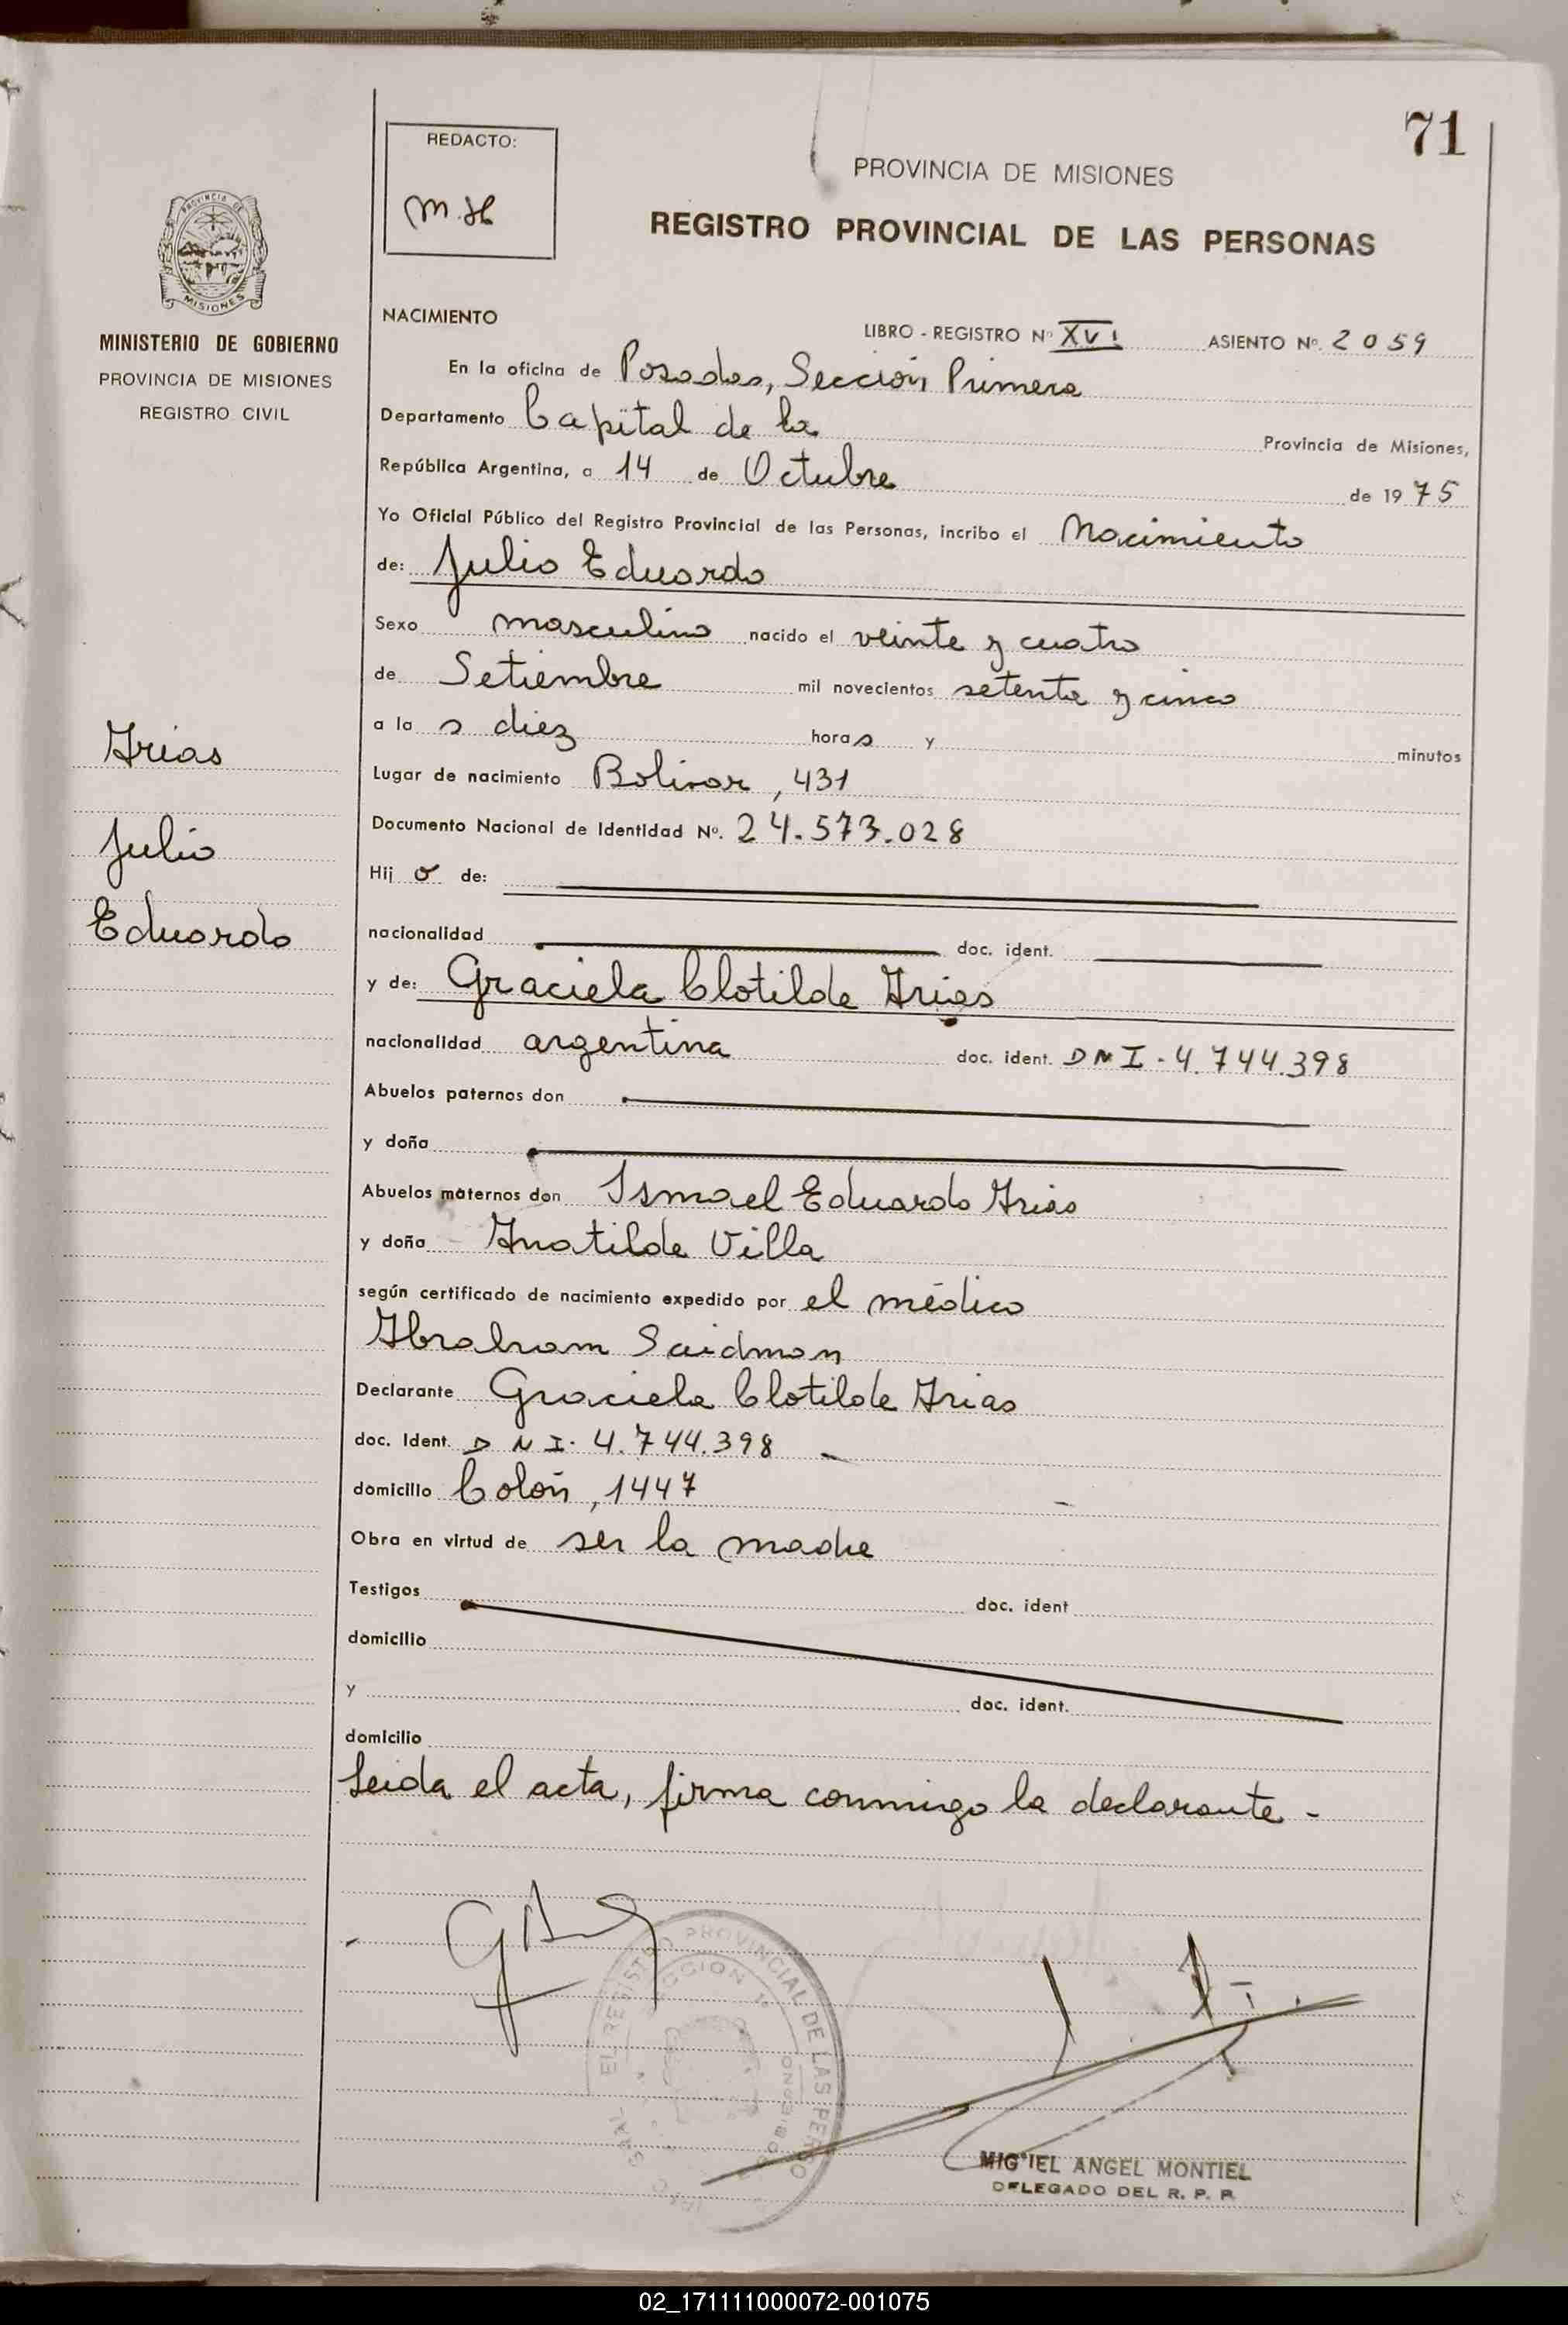 71
REDACTO:
M.H
PROVINCIA DE MISIONES
REGISTRO PROVINCIAL DE LAS PERSONAS
PROVINCIA DE
MISIONES
MINISTERIO DE GOBIERNO
PROVINCIA DE MISIONES
REGISTRO CIVIL
NACIMIENTO
LIBRO - REGISTRO Nº XVI ASIENTO Nº. 2059
En la oficina de Posadas, Sección Primera
Departamento Capital de la Provincia de Misiones,
República Argentina, a 14 de Octubre de 1975
Yo Oficial Público del Registro Provincial de las Personas, incribo el Nacimiento
de: Julio Eduardo
Sexo masculino nacido el veinte y cuatro
de Setiembre mil novecientos setenta y cinco
a la s diez horas y minutos
Arias
Lugar de nacimiento Bolivar, 431
Documento Nacional de Identidad Nº. 24.573.028
Julio
Hij o de:
Eduardo
nacionalidad doc. ident.
y de: Graciela Clotilde Arias
nacionalidad argentina doc. ident. DNI - 4.744.398
Abuelos paternos don
y doña
Abuelos maternos don Ismael Eduardo Arias
y doña Anatilde Villa
según certificado de nacimiento expedido por el médico
Abraham Saidman
Declarante Graciela Clotilde Arias
doc. Ident. DNI. 4.744.398
domicilio Colón, 1447
Obra en virtud de ser la madre
Testigos doc. ident
domicilio
y doc. ident.
domicilio
Leida el acta, firma conmigo la declarante -
REGISTRO PROVINCIAL DE LAS PERSO
SECCION 1ª
MIGUEL ANGEL MONTIEL
DELEGADO DEL R. P. P.
02_171111000072-001075